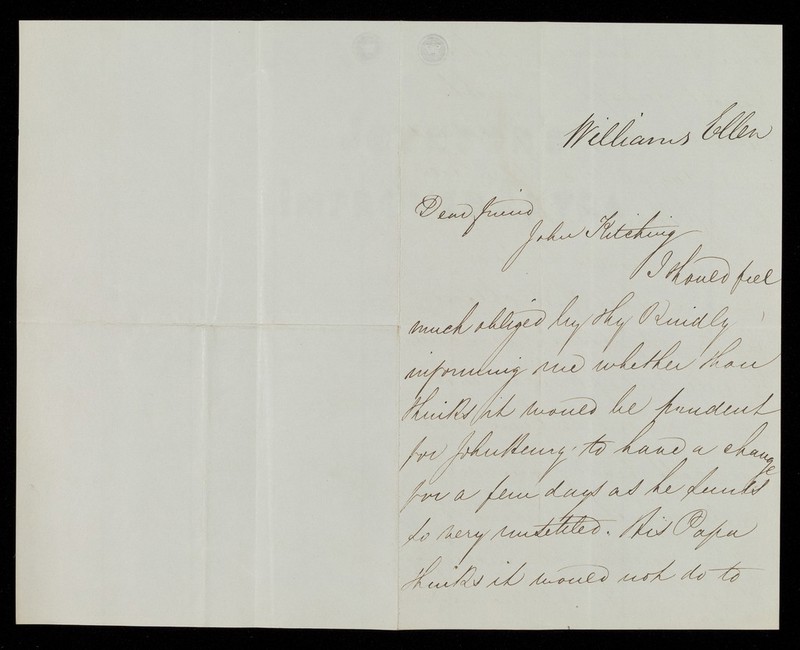 Williams Ellen
Dear friend
John Kitching
I should feel
much obliged by thy Kindly
informing me whether thou
thinks it would be prudent
for John Henry to have a change
for a few days as he feels
so very unsettled. His Papa
thinks it would not do to